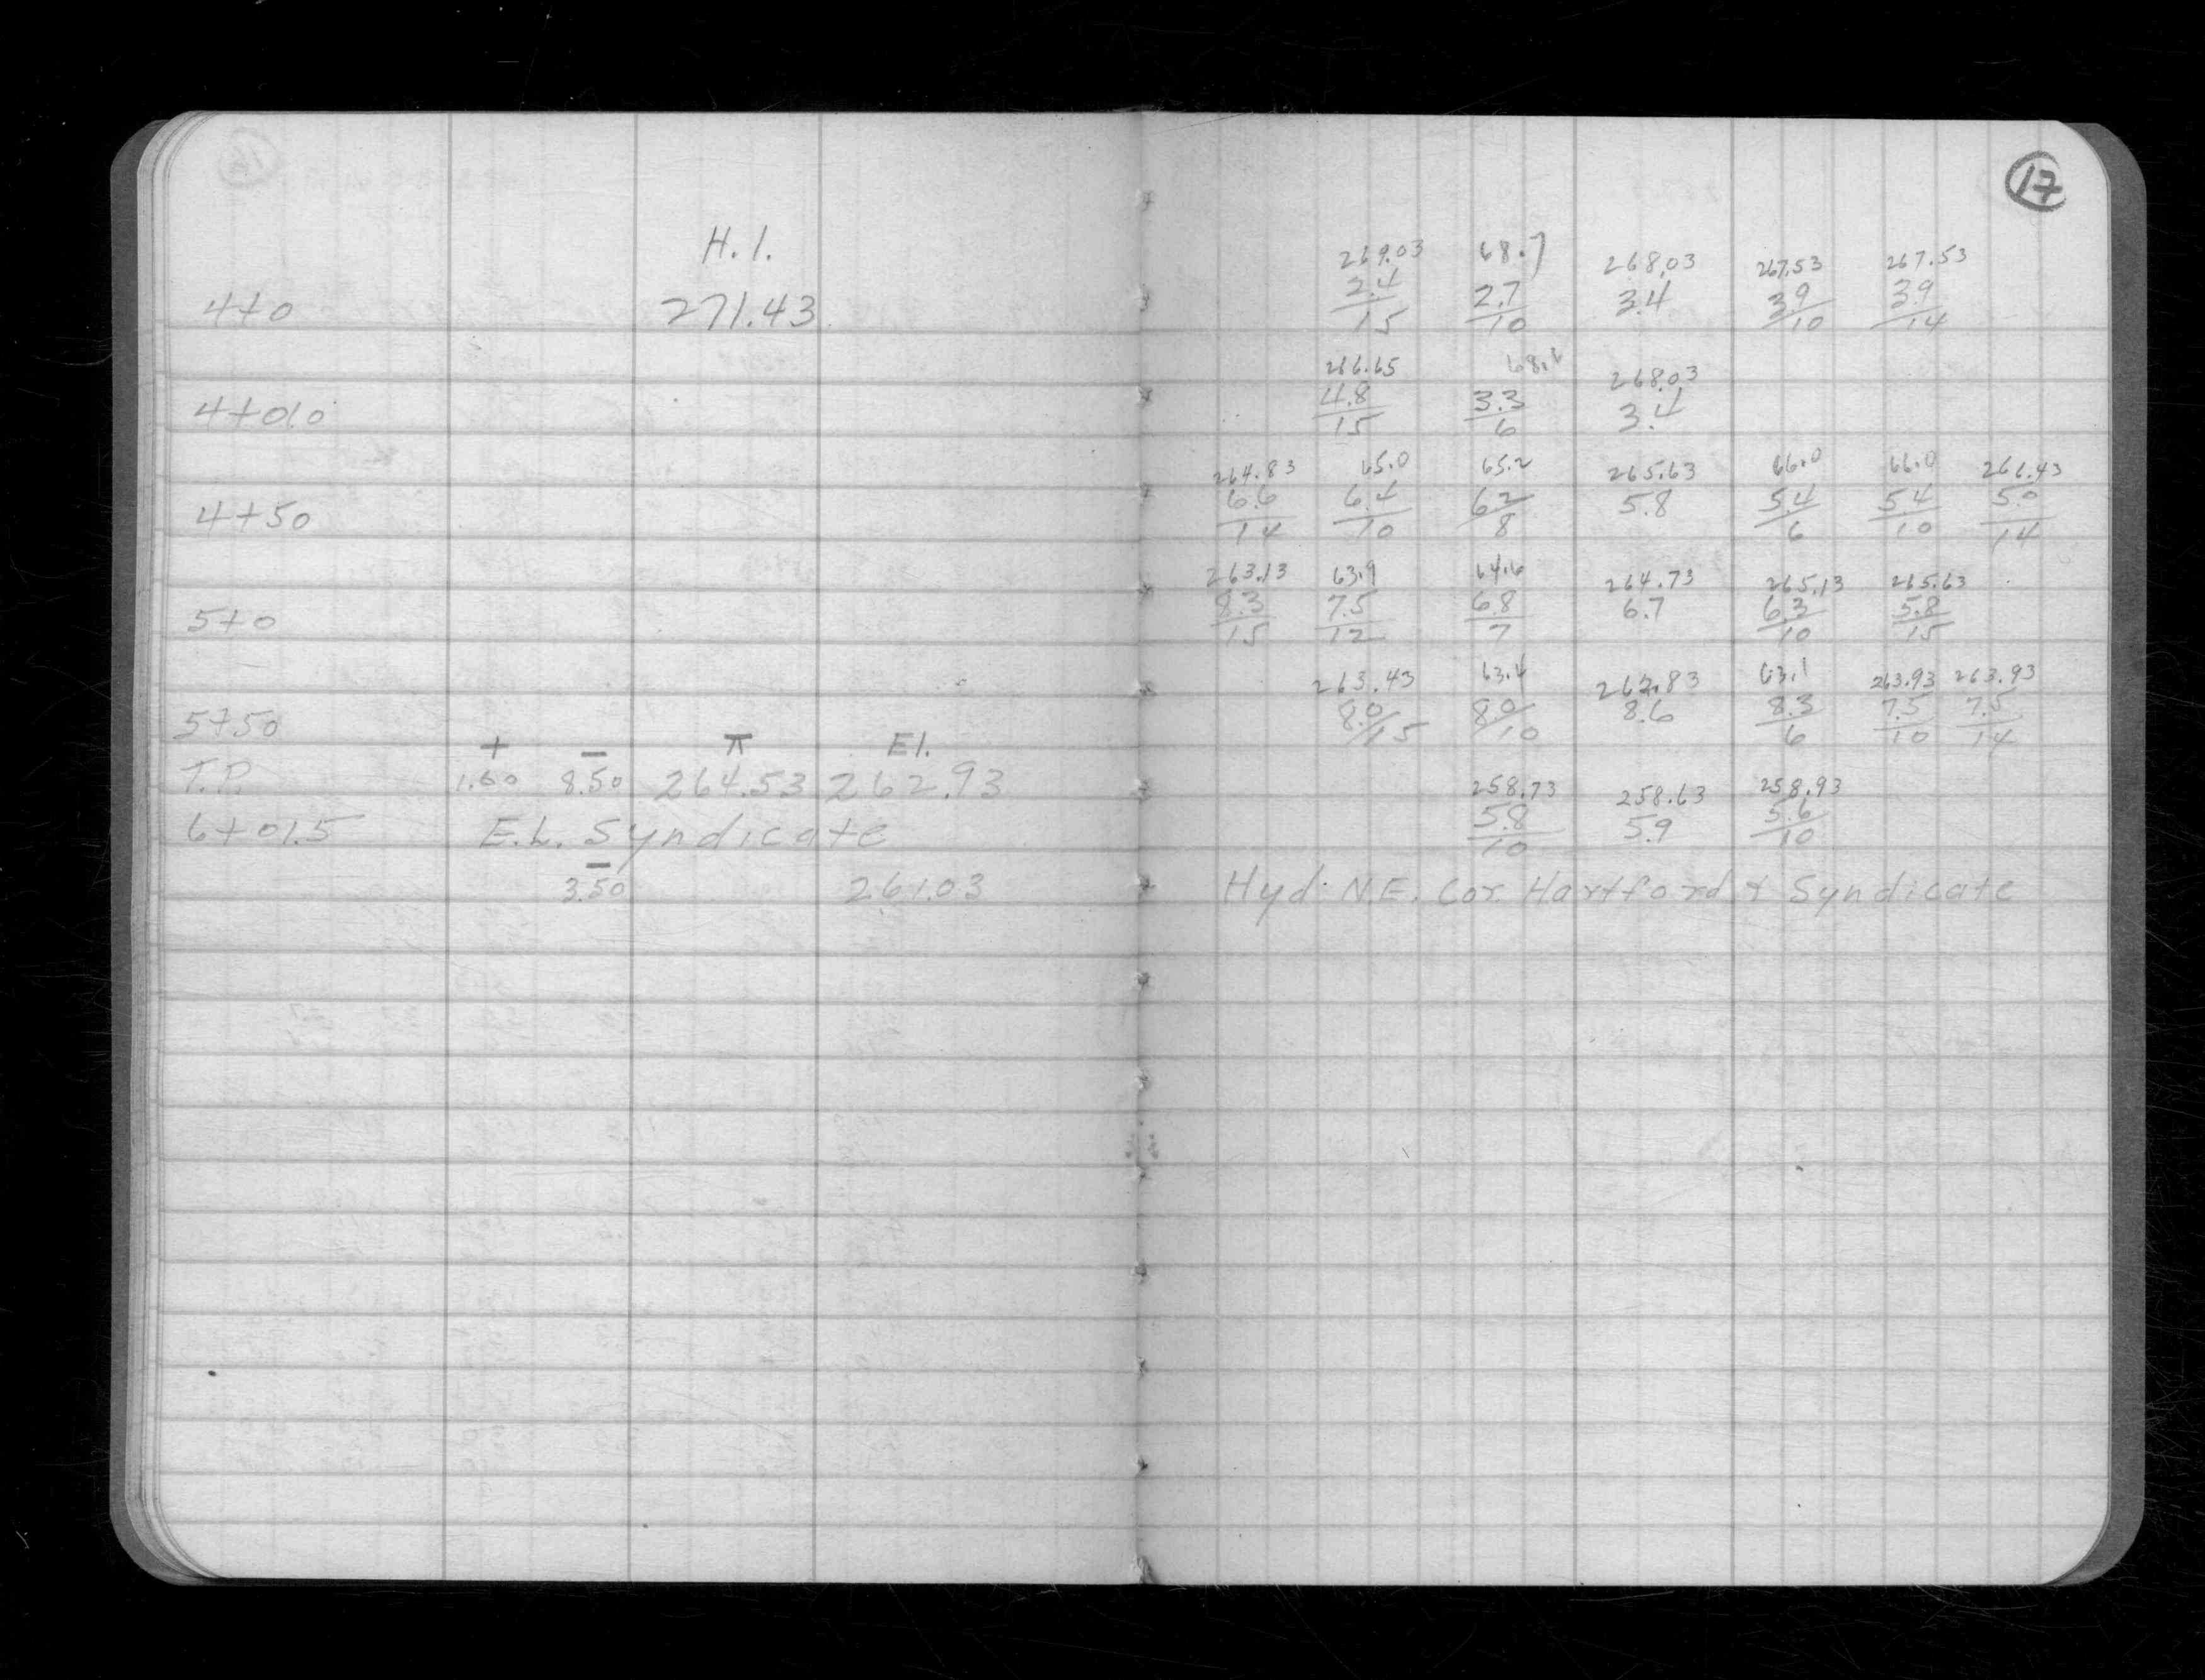 17
H.I.
269.03 68.7 268.03 267.53 267.53
4+0 271.43 2.4/15 2.7/10 3.4 3.9/10 3.9/14
266.65 268.03
4+01.0 4.8/15 3.3/6 3.4
264.83 65.0 65.2 265.63 66.0 66.0 266.43
4+50 6.6/14 6.4/10 6.2/8 5.8 5.4/6 5.4/10 5.0/14
263.13 63.9 64.6 264.73 265.13 265.63
5+0 8.3/15 7.5/12 6.8/7 6.7 6.3/10 5.8/15
263.43 63.4 262.83 63.1 263.93 263.93
5+50 8.0/15 8.0/10 8.6 8.3/6 7.5/10 7.5/14
+ − π El.
T.P. 1.60 8.50 264.53 262.93
258.73 258.63 258.93
6+01.5 E.L. Syndicate 5.8/10 5.9 5.6/10
−
3.50 261.03 Hyd. N.E. Cor. Hartford & Syndicate